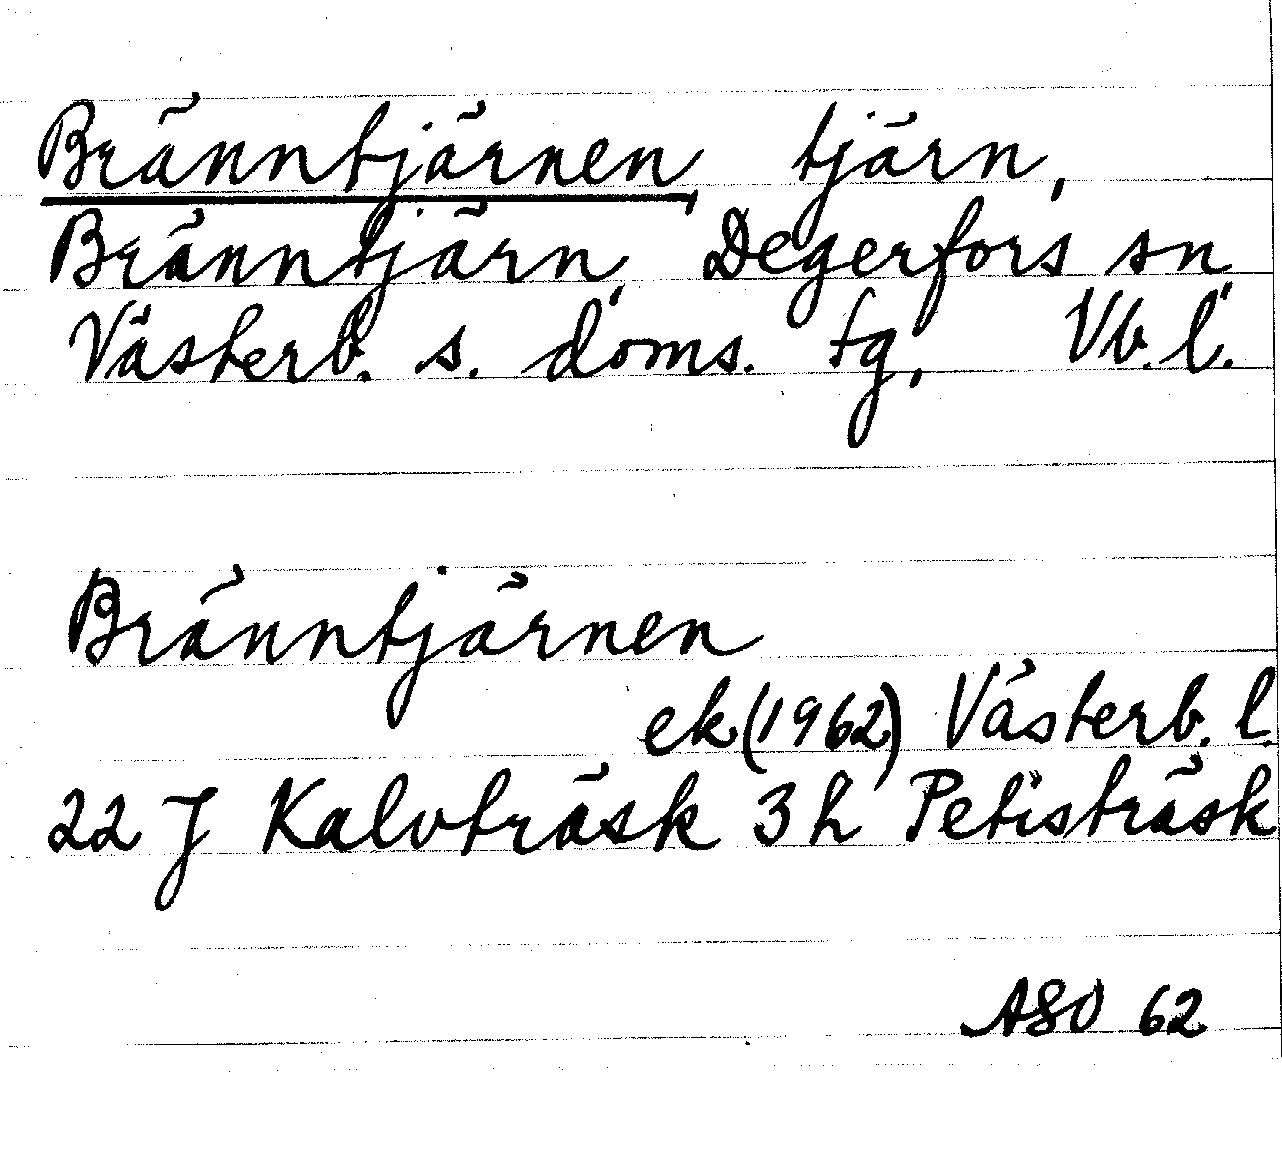 Bränntjärnen, tjärn,
Bränntjärn, Degerfors sn,
Västerb. s. doms. tg, Vb. l.
Bränntjärnen
ek (1962) Västerb. l.
22 J Kalvträsk 3 h Petisträsk
ASO 62